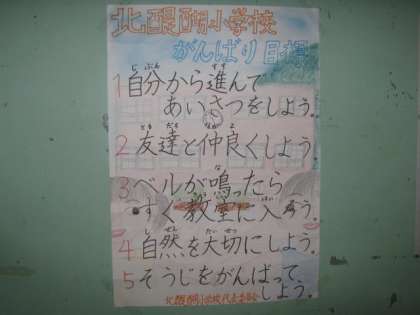 北醍醐小学校
がんばり目標
1 自分から進んで
あいさつをしよう。
2 友達と仲良くしよう
3 ベルが鳴ったら
すぐ教室に入ろう。
4 自然を大切にしよう。
5 そうじをがんばって
しよう。
北醍醐小学校代表委員会